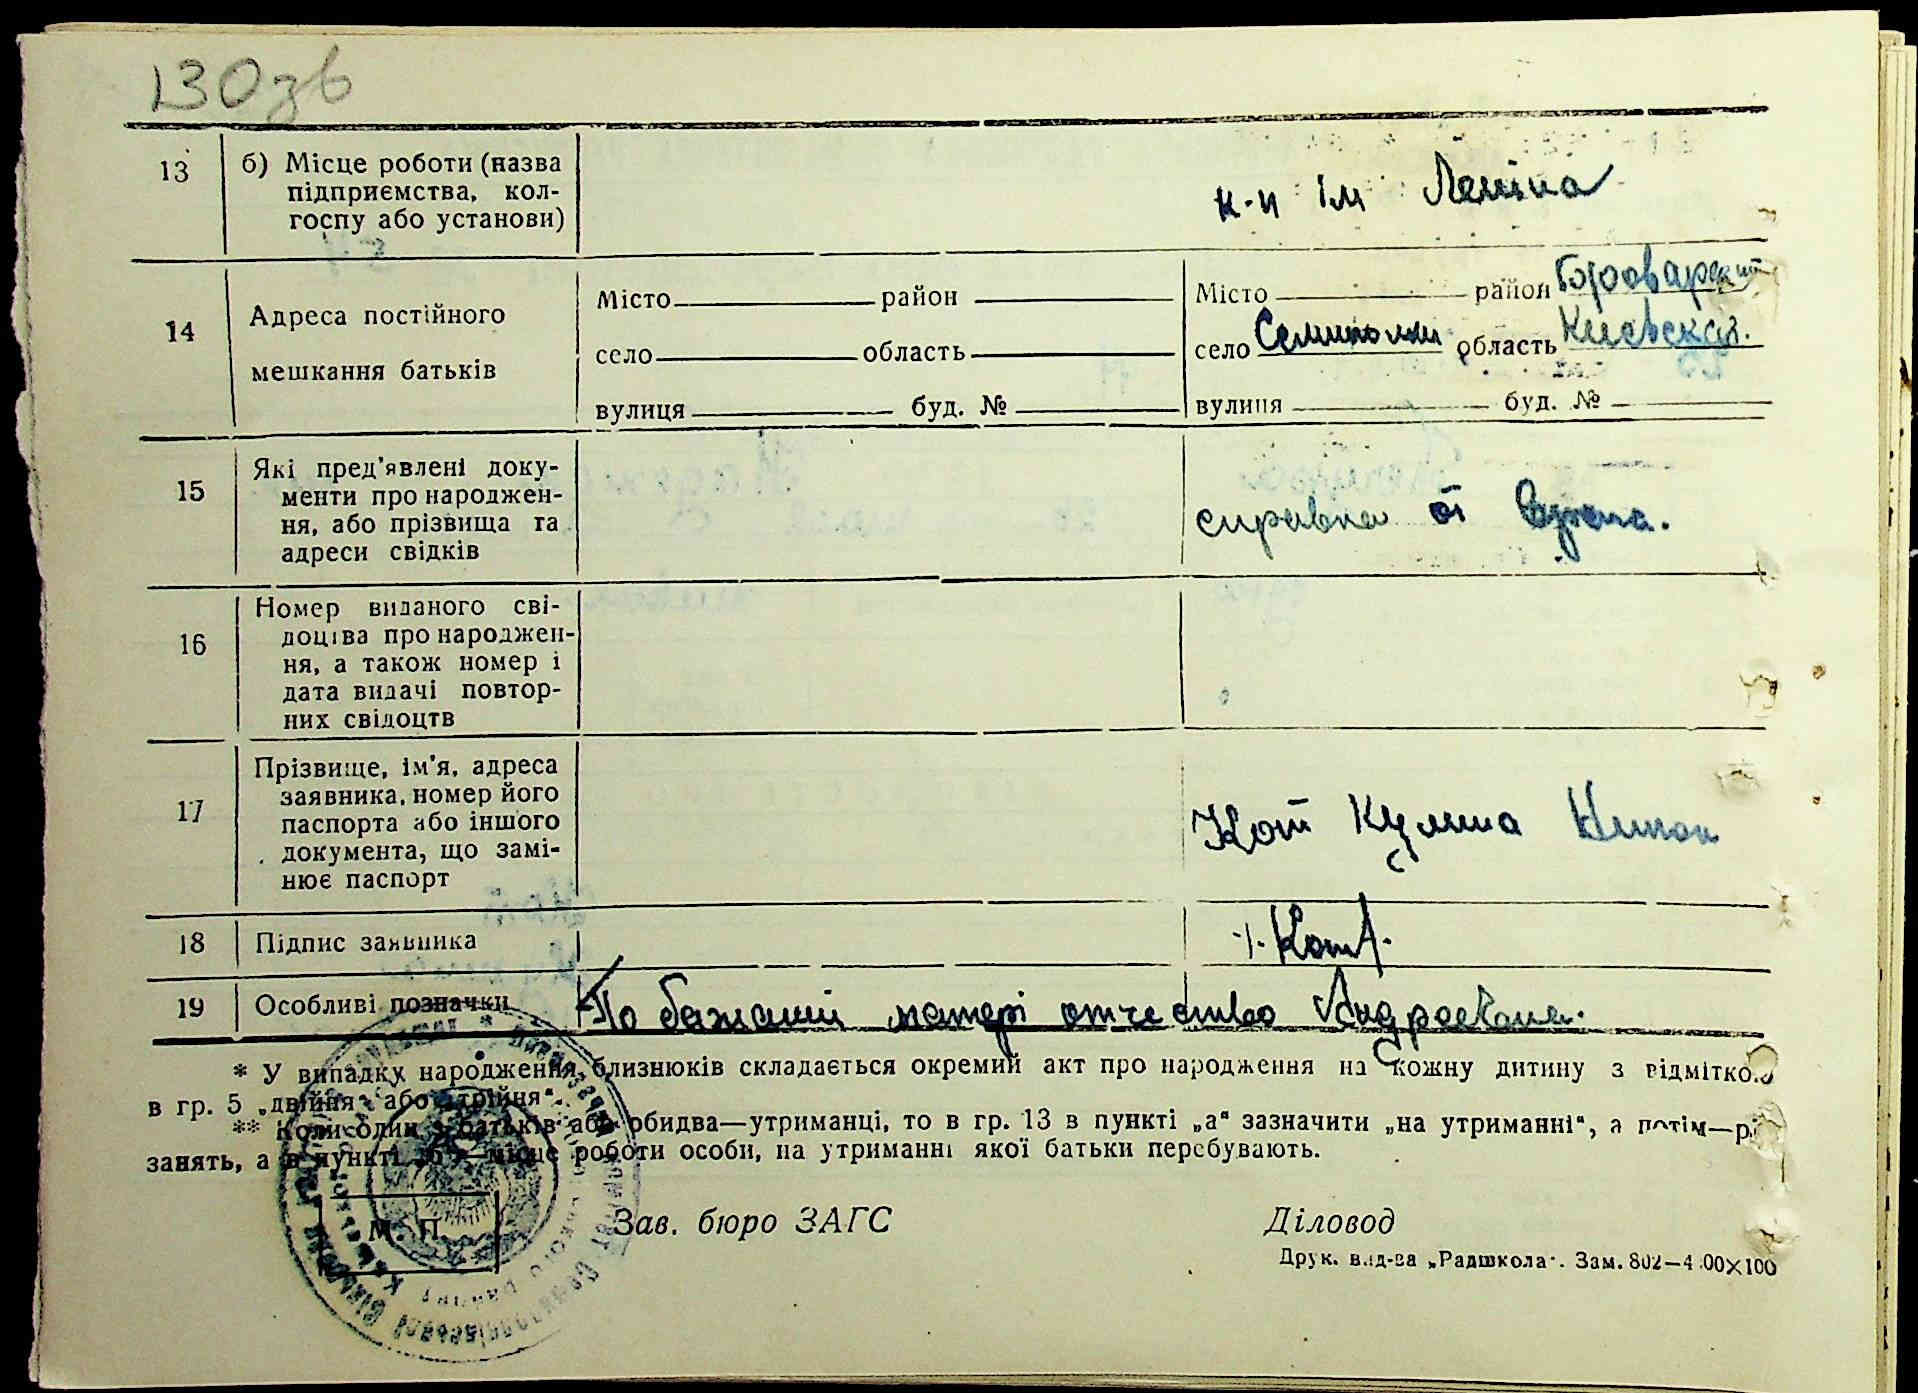 130зв
13 б) Місце роботи (назва
підприємства, кол-
госпу або установи)
к-п ім Леніна
14 Адреса постійного
мешкання батьків
Місто район
село область
вулиця буд. №
Місто район
село Семиполки область Киевская.
вулиця буд. №
15 Які пред'явлені доку-
менти про народжен-
ня, або прізвища та
адреси свідків
справка от
16 Номер виданого сві-
доцтва про народжен-
ня, а також номер і
дата видачі повтор-
них свідоцтв
17 Прізвище, ім'я, адреса
заявника, номер його
паспорта або іншого
документа, що замі-
нює паспорт
Кот Кулина
18 Підпис заявника
Кот
19 Особливі позначки
По бажанні матері отчество Андреевна.
* У випадку народження близнюків складається окремий акт про народження на кожну дитину з відміткою
в гр. 5 „двійня“ або „трійня“.
** Коли один з батьків або обидва—утриманці, то в гр. 13 в пункті „а“ зазначити „на утриманні“, а потім—рід
занять, а в пункті „б“—місце роботи особи, на утриманні якої батьки перебувають.
М. П.
Зав. бюро ЗАГС
Діловод
Друк. вид-ва „Радшкола“. Зам. 802—4.00×100